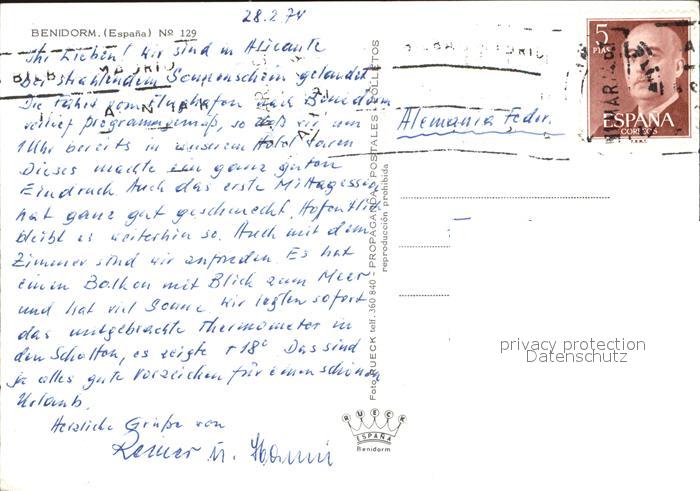 28.2.74
BENIDORM. (España) Nº 129
Ihr Lieben! Wir sind in Alicante
bei strahlendem Sonnenschein gelandet
Die Fahrt vom Flughafen nach Benidorm
verlief programmgemäß, so daß wir um
1 Uhr bereits in unserem Hotel waren
Dieses machte ein ganz guten
Eindruck Auch das erste Mittagessen
hat ganz gut geschmeckt. Hoffentlich
bleibt es weiterhin so. Auch mit dem
Zimmer sind wir zufrieden Es hat
einen Balkon mit Blick zum Meer
und hat viel Sonne wir legten sofort
das mitgebrachte Thermometer in
den Schatten, es zeigte +18° Das sind
ja alles gute Vorzeichen für einen schönen
Urlaub.
Herzliche Grüße von
Reiner u.
Foto RUECK telf. 360 840 - PROPAGANDA - POSTALES - FOLLETOS
reproducción prohibida
Alemania Feder.
5
PTAS
ESPAÑA
CORREOS
F.N.M.T.
RUECK
ESPAÑA
Benidorm
privacy protection
Datenschutz